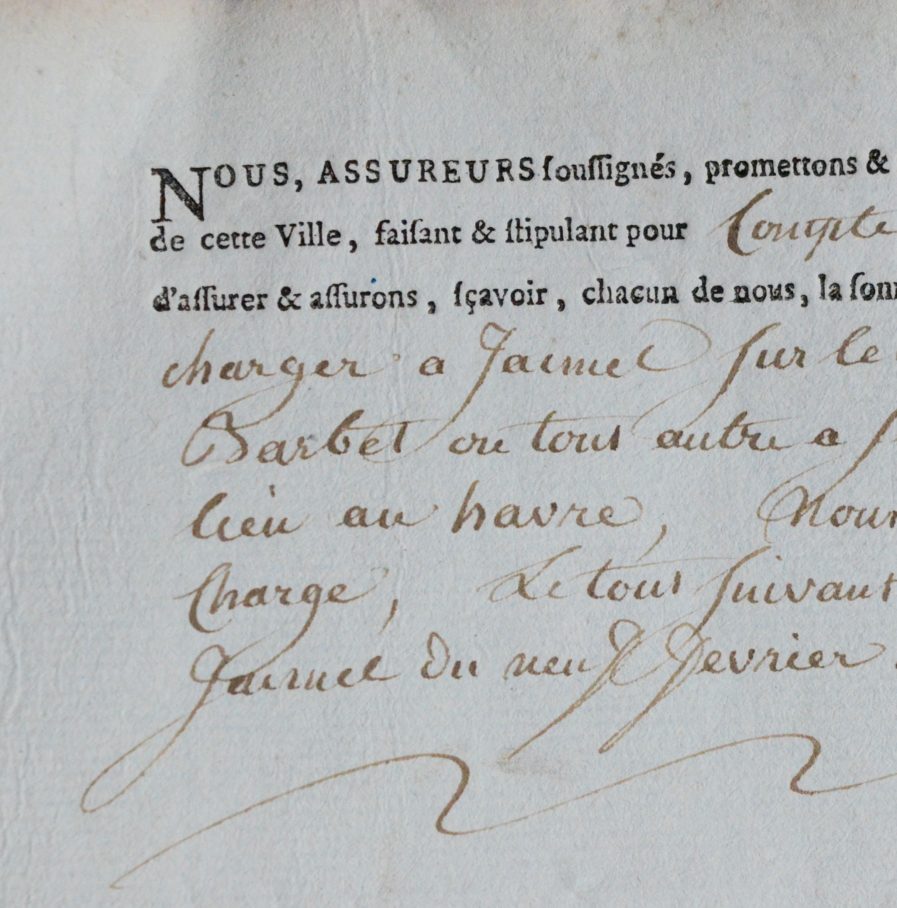 NOUS, ASSUREURS ſouſſignés, promettons &
de cette Ville, faiſant & ſtipulant pour Compte
d'aſſurer & aſſurons, ſçavoir, chacun de nous, la ſom
charger a Jacmel sur le
Barbet ou tout autre a
lieu au havre, Nour
Charge, Le tout suivant
Jacmel du neuf fevrier